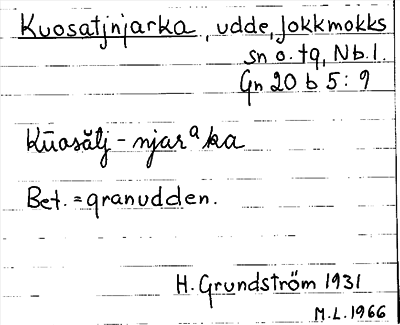 Kuosatjnjarka, udde, Jokkmokks
sn o. tg, Nb. l.
Gn 20 b 5:9
Kūosătj-njarᵃka
Bet. = granudden.
H. Grundström 1931
M.L. 1966